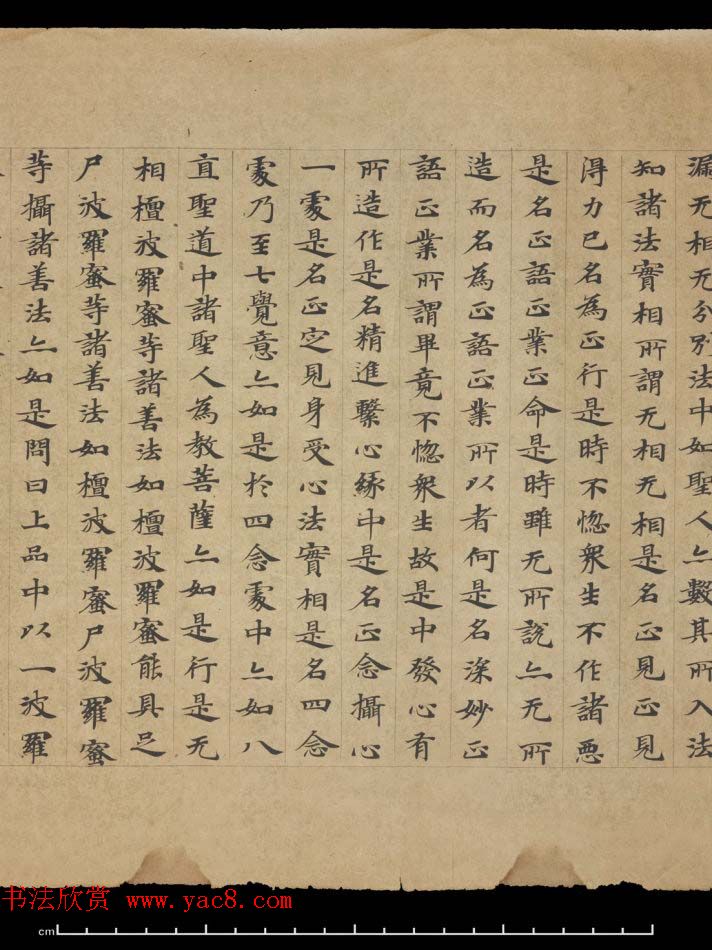 漏无相无分別法中如聖人亦數其所入法
知諸法實相所謂无相无相是名正見正見
得力已名為正行是時不惱衆生不作諸惡
是名正語正業正命是時雖无所說亦无所
造而名為正語正業所以者何是名深妙正
語正業所謂畢竟不惱衆生故是中發心有
所造作是名精進繫心緣中是名正念攝心
一處是名正定見身受心法實相是名四念
處乃至七覺意亦如是於四念處中亦如八
直聖道中諸聖人為教菩薩亦如是行是无
相檀波羅蜜等諸善法如檀波羅蜜能具足
尸波羅蜜等諸善法如檀波羅蜜尸波羅蜜
等攝諸善法亦如是問曰上品中以一波羅
书法欣赏 www.yac8.com
cm